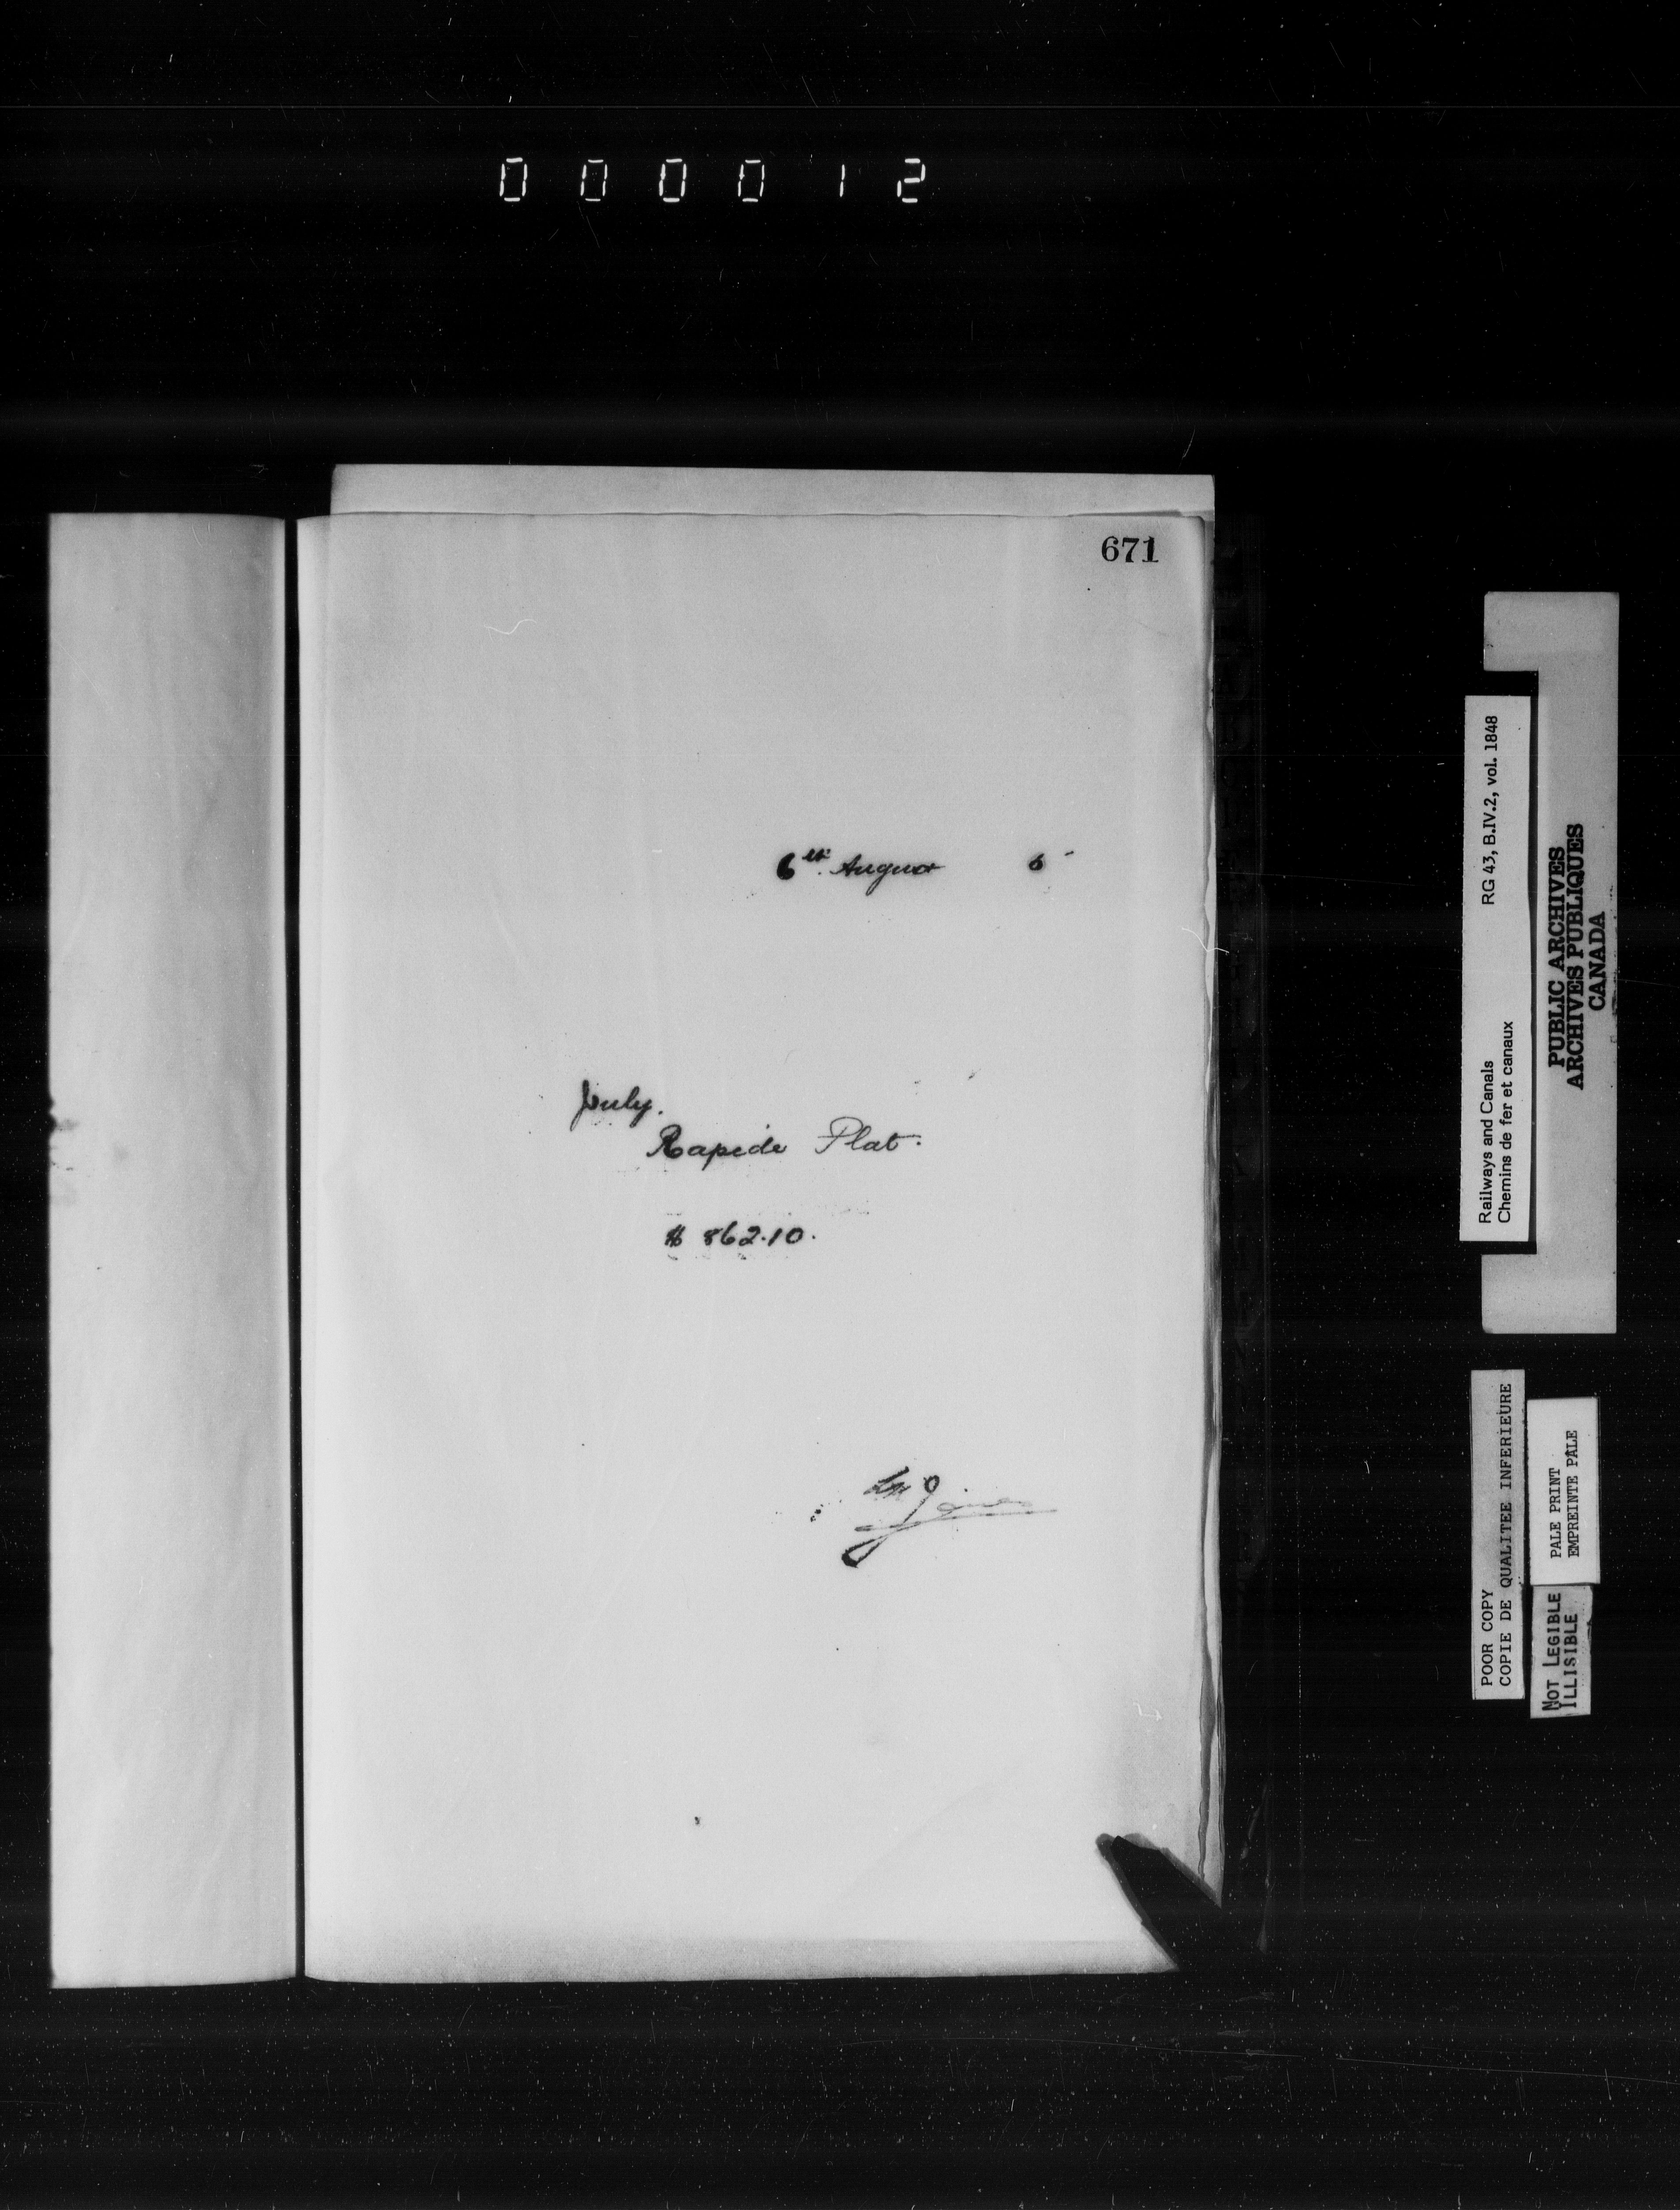 000012
671
6th August 6
July.
Rapide Plat.
$ 862.10.
Railways and Canals RG 43, B.IV.2, vol. 1848
Chemins de fer et canaux
PUBLIC ARCHIVES
ARCHIVES PUBLIQUES
CANADA
POOR COPY
COPIE DE QUALITEE INFERIEURE
PALE PRINT
EMPREINTE PALE
NOT LEGIBLE
ILLISIBLE